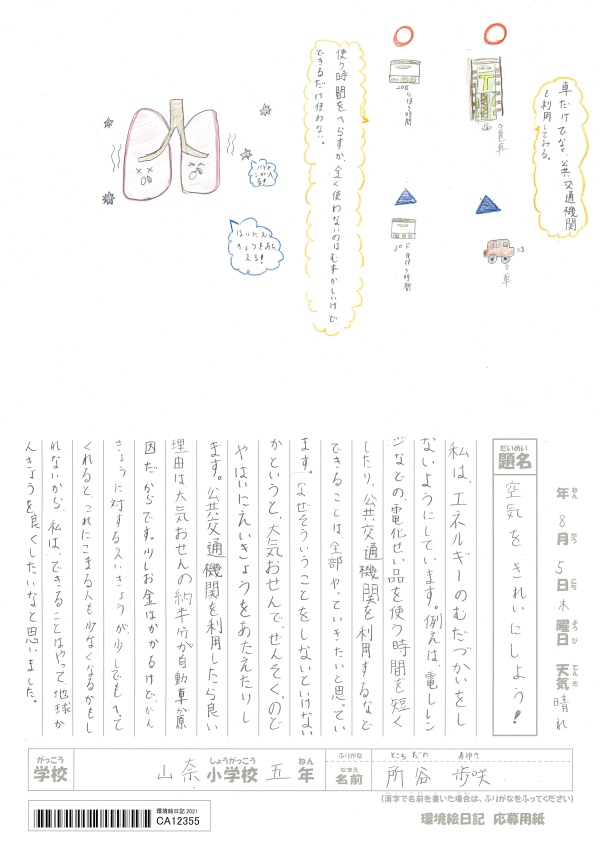 車だけでなく、公共交通機関
も利用してみる。
電車
車
使う時間
使う時間
使う時間をへらすか、全く使わないのはむずかしいけど、
できるだけ使わない。
はいにえい
きょうをあた
える!
だいめい
題名
空気をきれいにしよう!
年 8月 5日 木曜日 天気 晴れ
ねん がつ にち ようび てんき
私は、エネルギーのむだづかいをし
ないようにしています。例えば、電しレン
ジなどの、電化せい品を使う時間を短く
したり、公共交通機関を利用するなど
できることは全部やっていきたいと思ってい
ます。なぜそういうことをしないといけない
かというと、大気おせんで、ぜんそく、のど
やはいにえいきょうをあたえたりし
ます。公共交通機関を利用したら良い
理由は大気おせんの約半分が自動車が原
因だからです。少しお金はかかるけど、かん
きょうに対するえいきょうが少しでもへって
くれると、これにこまる人も少なくなるかもし
れないから、私は、できることはやって、地球か
んきょうを良くしたいなと思いました。
がっこう しょうがっこう ねん
学校 山奈小学校 五年
ふりがな ところだに あゆさ
なまえ
名前 所谷 歩咲
(漢字で名前を書いた場合は、ふりがなをふってください)
環境絵日記 2021
CA12355
環境絵日記 応募用紙